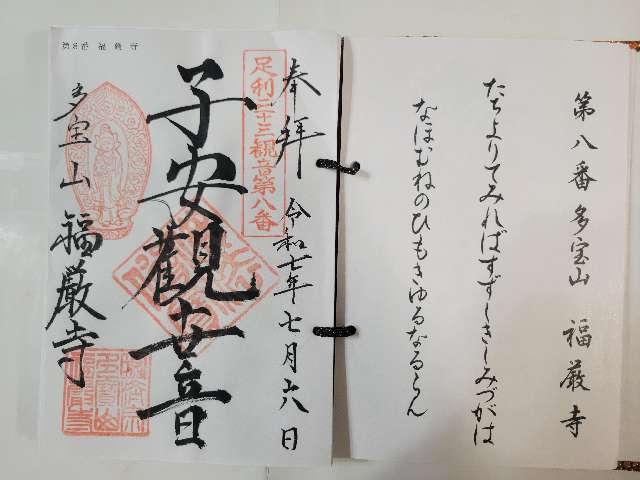 第八番 多宝山 福厳寺
たちよりてみればすずしきしみづがは
なほむねのひもきゆるなるらん
奉拝 令和七年七月六日
足利三十三観音第八番
子安觀世音
多宝山 福厳寺
第8番 福厳寺